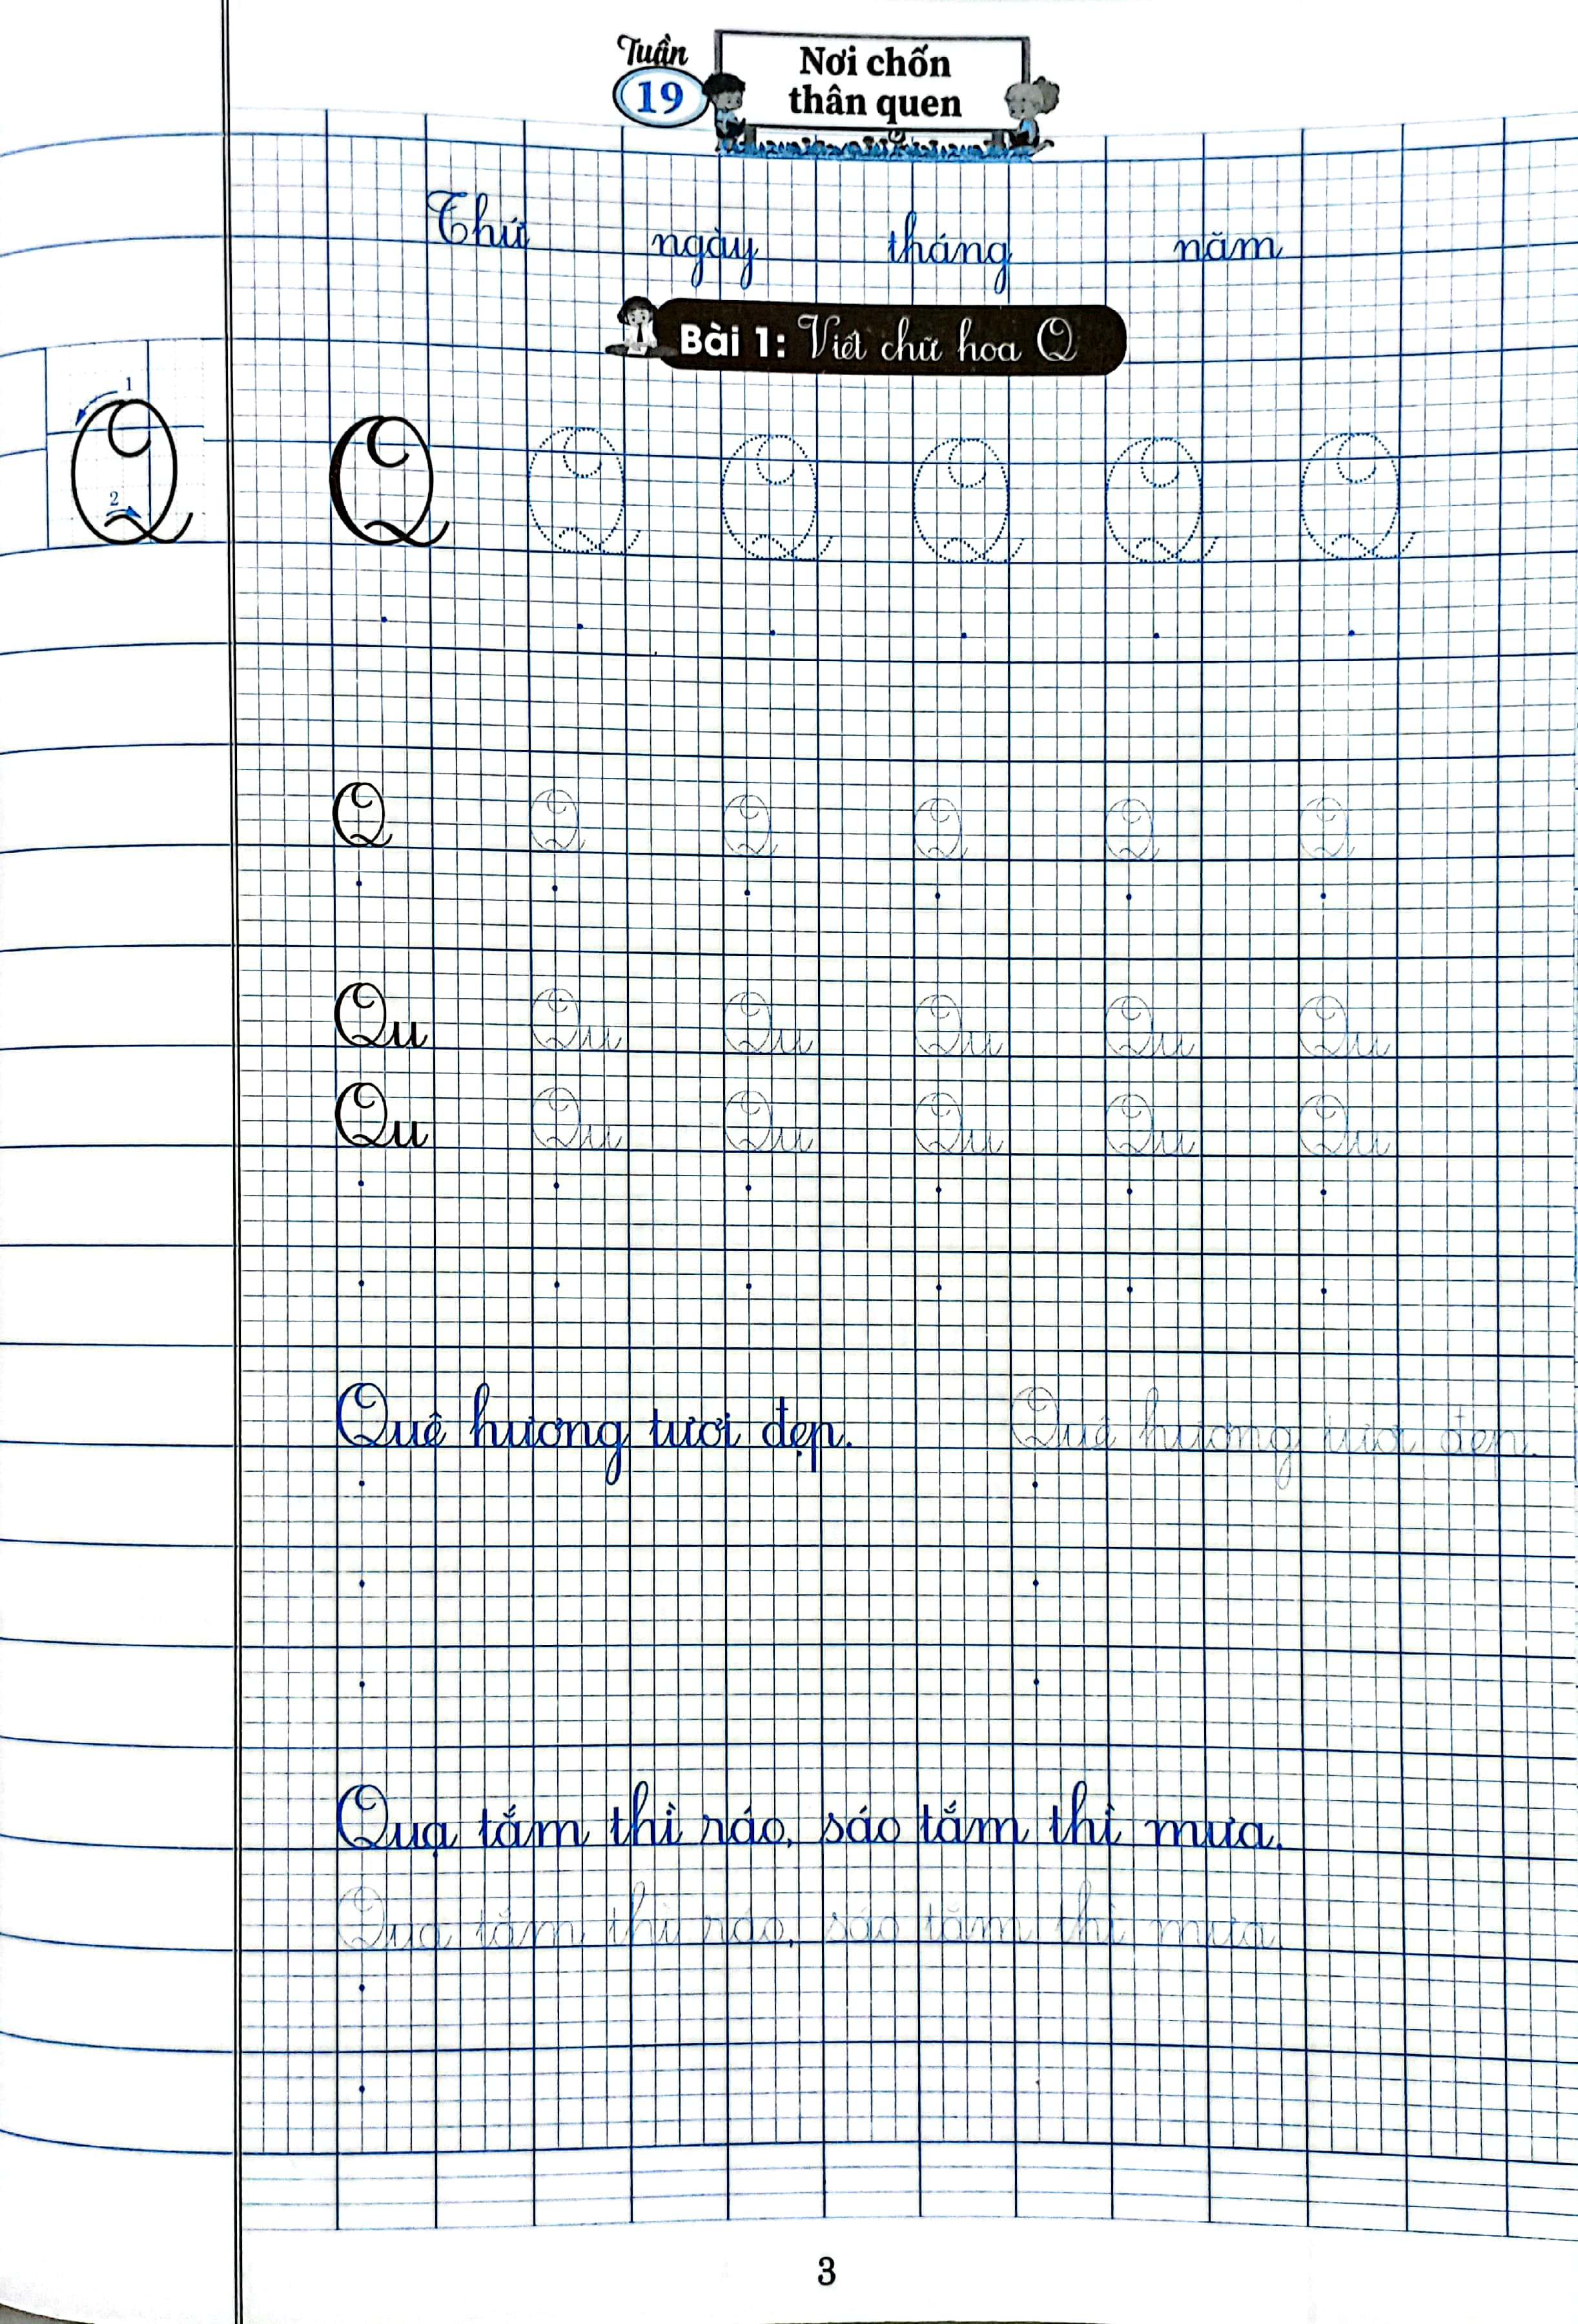 Tuần
19
Nơi chốn
thân quen
Thứ ngày tháng năm
Bài 1: Viết chữ hoa Q
1
2
Q
Q Q Q Q Q Q
Q Q Q Q Q Q
Qu Qu Qu Qu Qu Qu
Qu Qu Qu Qu Qu Qu
Quê hương tươi đẹp. Quê hương tươi đẹp.
Quạ tắm thì ráo, sáo tắm thì mưa.
Quạ tắm thì ráo, sáo tắm thì mưa.
3